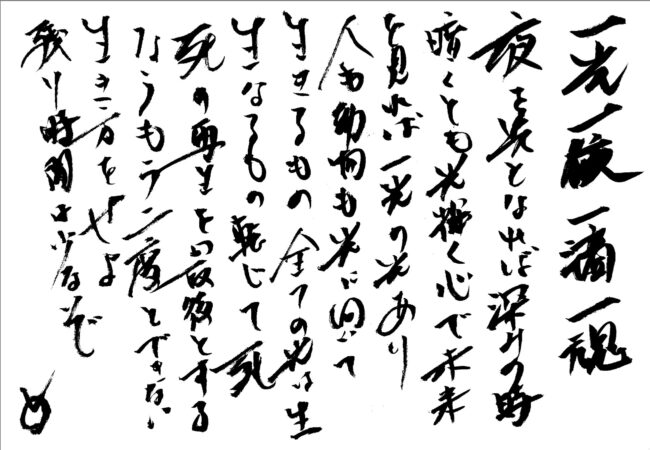 一光一夜一滴一魂
夜を光となれば深みの時
暗くとも光輝く心で未来
を見れば一光の光あり
人も動物も光に向いて
生きるもの全ての光は生
生なるもの転じて死
死の再生を最後とする
ならもう二度とできない
生き方をせよ
残り時間は少ないぞ